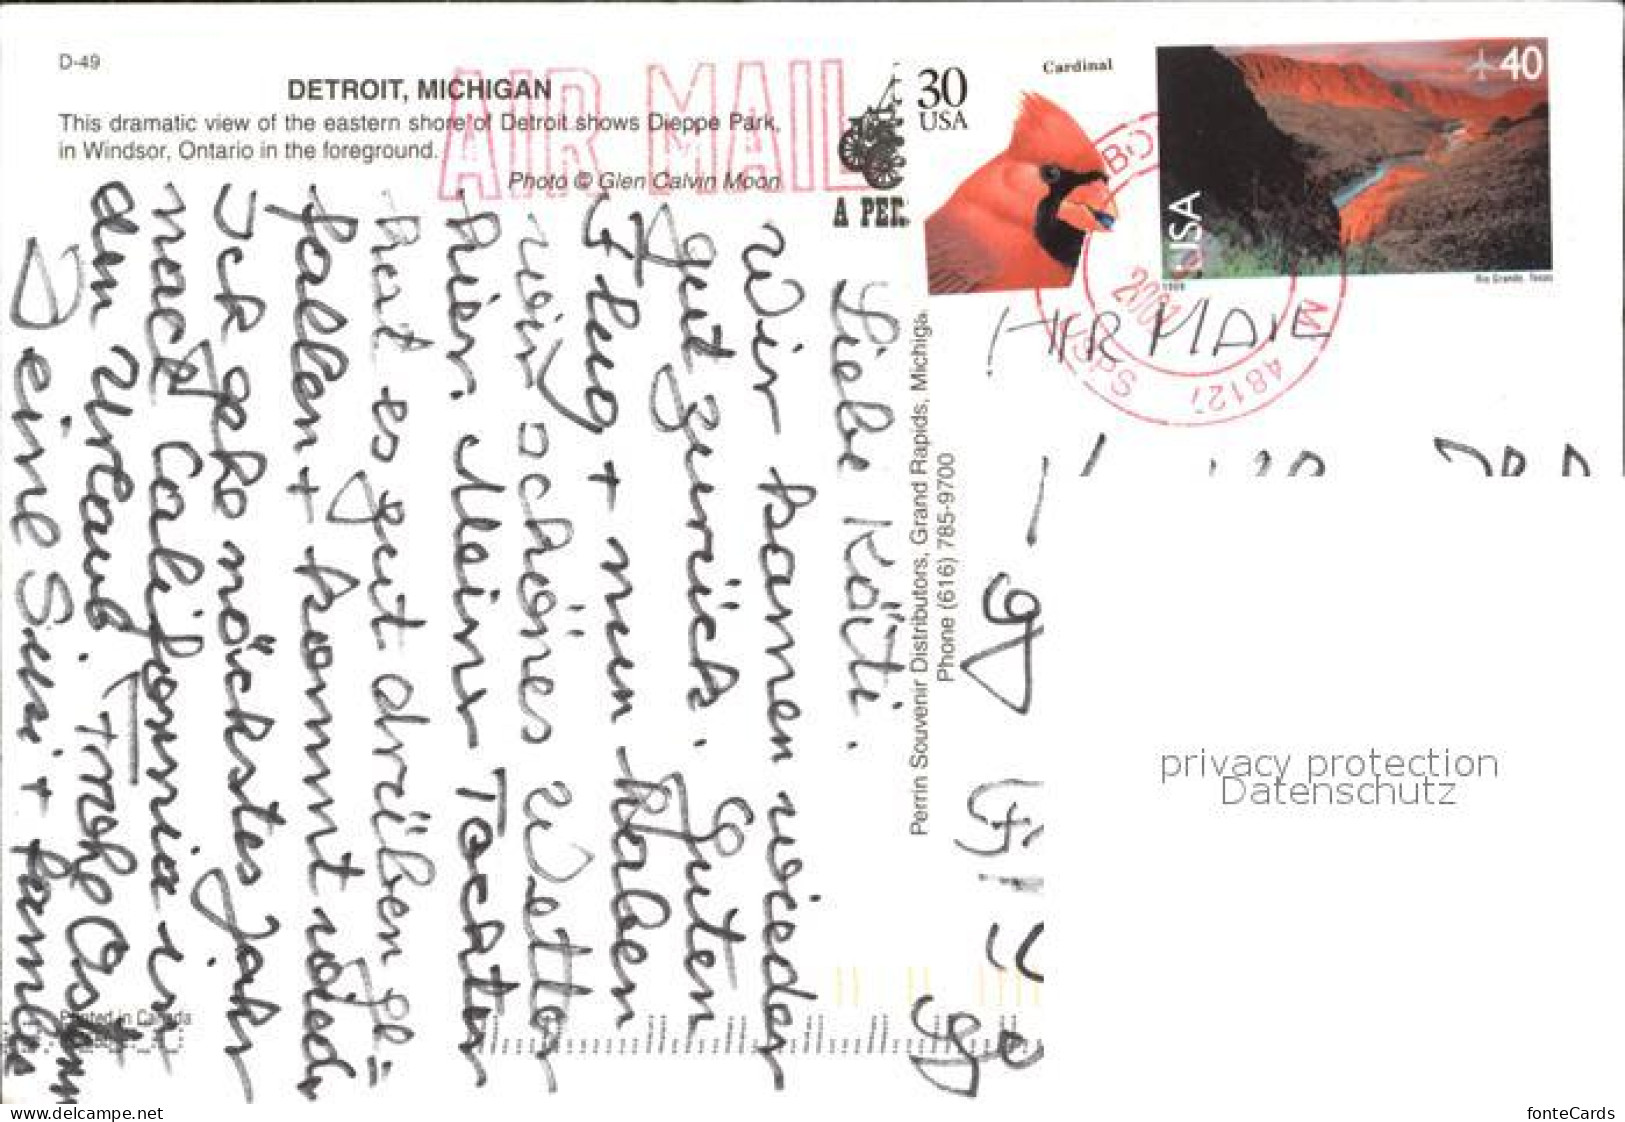 D-49
DETROIT, MICHIGAN
This dramatic view of the eastern shore of Detroit shows Dieppe Park,
in Windsor, Ontario in the foreground.
Photo © Glen Calvin Moon
AIR MAIL
A PER
30
USA
Cardinal
40
USA
1999
Rio Grande, Texas
2001
USPS
4812
M
AIR MAIL
Perrin Souvenir Distributors, Grand Rapids, Michiga
Phone (616) 785-9700
Liebe Käti.
Wir kamen wieder
gut zurück. Guten
Flug + nun haben
wir schönes Wetter
hier. Meine Tochter
hat es gut drüben ge=
fallen + kommt wieder
Ich gehe nächstes Jahr
nach California in
den Urlaub. Frohe Ostern
Deine Susi + families
Printed in Canada
privacy protection
Datenschutz
www.delcampe.net
fonteCards